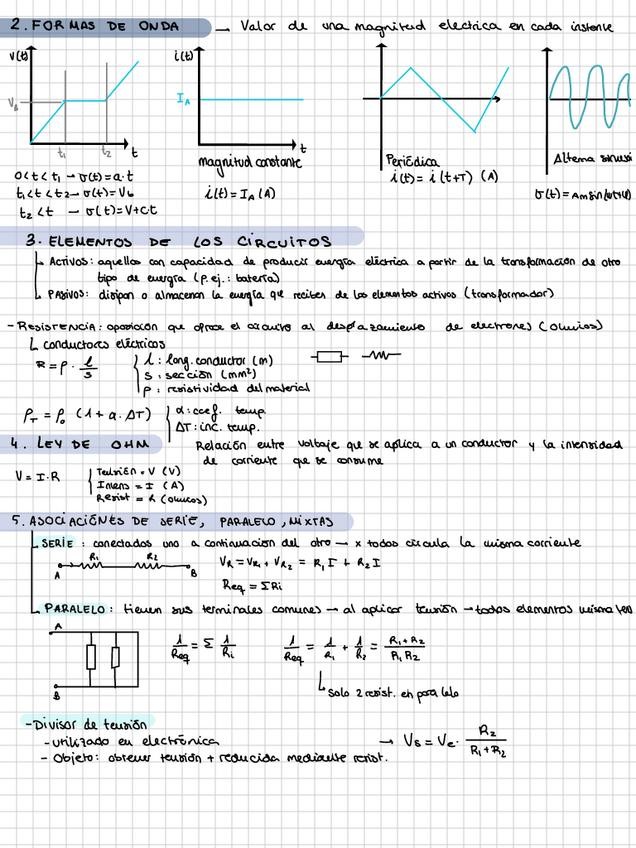 2. FORMAS DE ONDA → Valor de una magnitud electrica en cada instante
v(t) i(t)
V₀ I_A
t₁ t₂ t t
magnitud constante Periódica Alterna sinusoi
0<t<t₁ → v(t)=a·t i(t)= I_A (A) i(t)= i(t+T) (A)
t₁<t<t₂ → v(t)=V₀ v(t)=Amsin(wt+φ)
t₂<t → v(t)=V+ct
3. ELEMENTOS DE LOS CIRCUITOS
ACTIVOS: aquellos con capacidad de producir energía eléctrica a partir de la transformación de otro
tipo de energía (p.ej.: batería)
PASIVOS: disipan o almacenan la energía que reciben de los elementos activos (transformador)
-Resistencia: oposición que ofrece el circuito al desplazamiento de electrones (Ohmios)
conductores eléctricos
R = ρ · l/s
l: long. conductor (m)
s: sección (mm²)
ρ: resistividad del material
ρ_T = ρ₀ (1 + α·ΔT)
α: coef. temp.
ΔT: inc. temp.
4. LEY DE OHM Relación entre voltaje que se aplica a un conductor y la intensidad
de corriente que se consume
V = I·R
Tensión = V (V)
Intens = I (A)
Resist = R (Ohmios)
5. ASOCIACIÓNES DE SERIE, PARALELO, MIXTAS
SERIE: conectados uno a continuacion del otro → x todos circula la misma corriente
R₁ R₂
A B
V_R = V_R1 + V_R2 = R₁I + R₂I
Req = ΣRi
PARALELO: tienen sus terminales comunes → al aplicar tensión → todos elementos misma ten
A
1/Req = Σ 1/Ri 1/Req = 1/R₁ + 1/R₂ = R₁+R₂/R₁R₂
Solo 2 resist. en paralelo
B
-Divisor de tensión
-utilizado en electrónica → Vs = Ve · R₂/R₁+R₂
- Objeto: obtener tensión + reducida mediante resist.